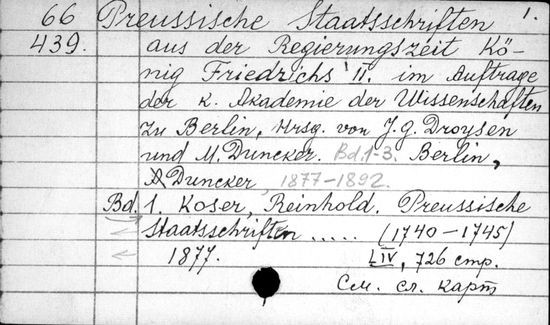 66 Preussische Staatsschriften 1.
439. aus der Regierungszeit Kö-
nig Friedrichs II. im Auftrage
der K. Akademie der Wissenschaften
zu Berlin, Hrsg. von J. G. Droysen
und M. Duncker. Bd. 1-3. Berlin,
A Duncker, 1877-1892.
Bd. 1. Koser, Reinhold. Preussische
Staatsschriften ..... (1740-1745)
1877. LIV, 726 стр.
См. сл. карт